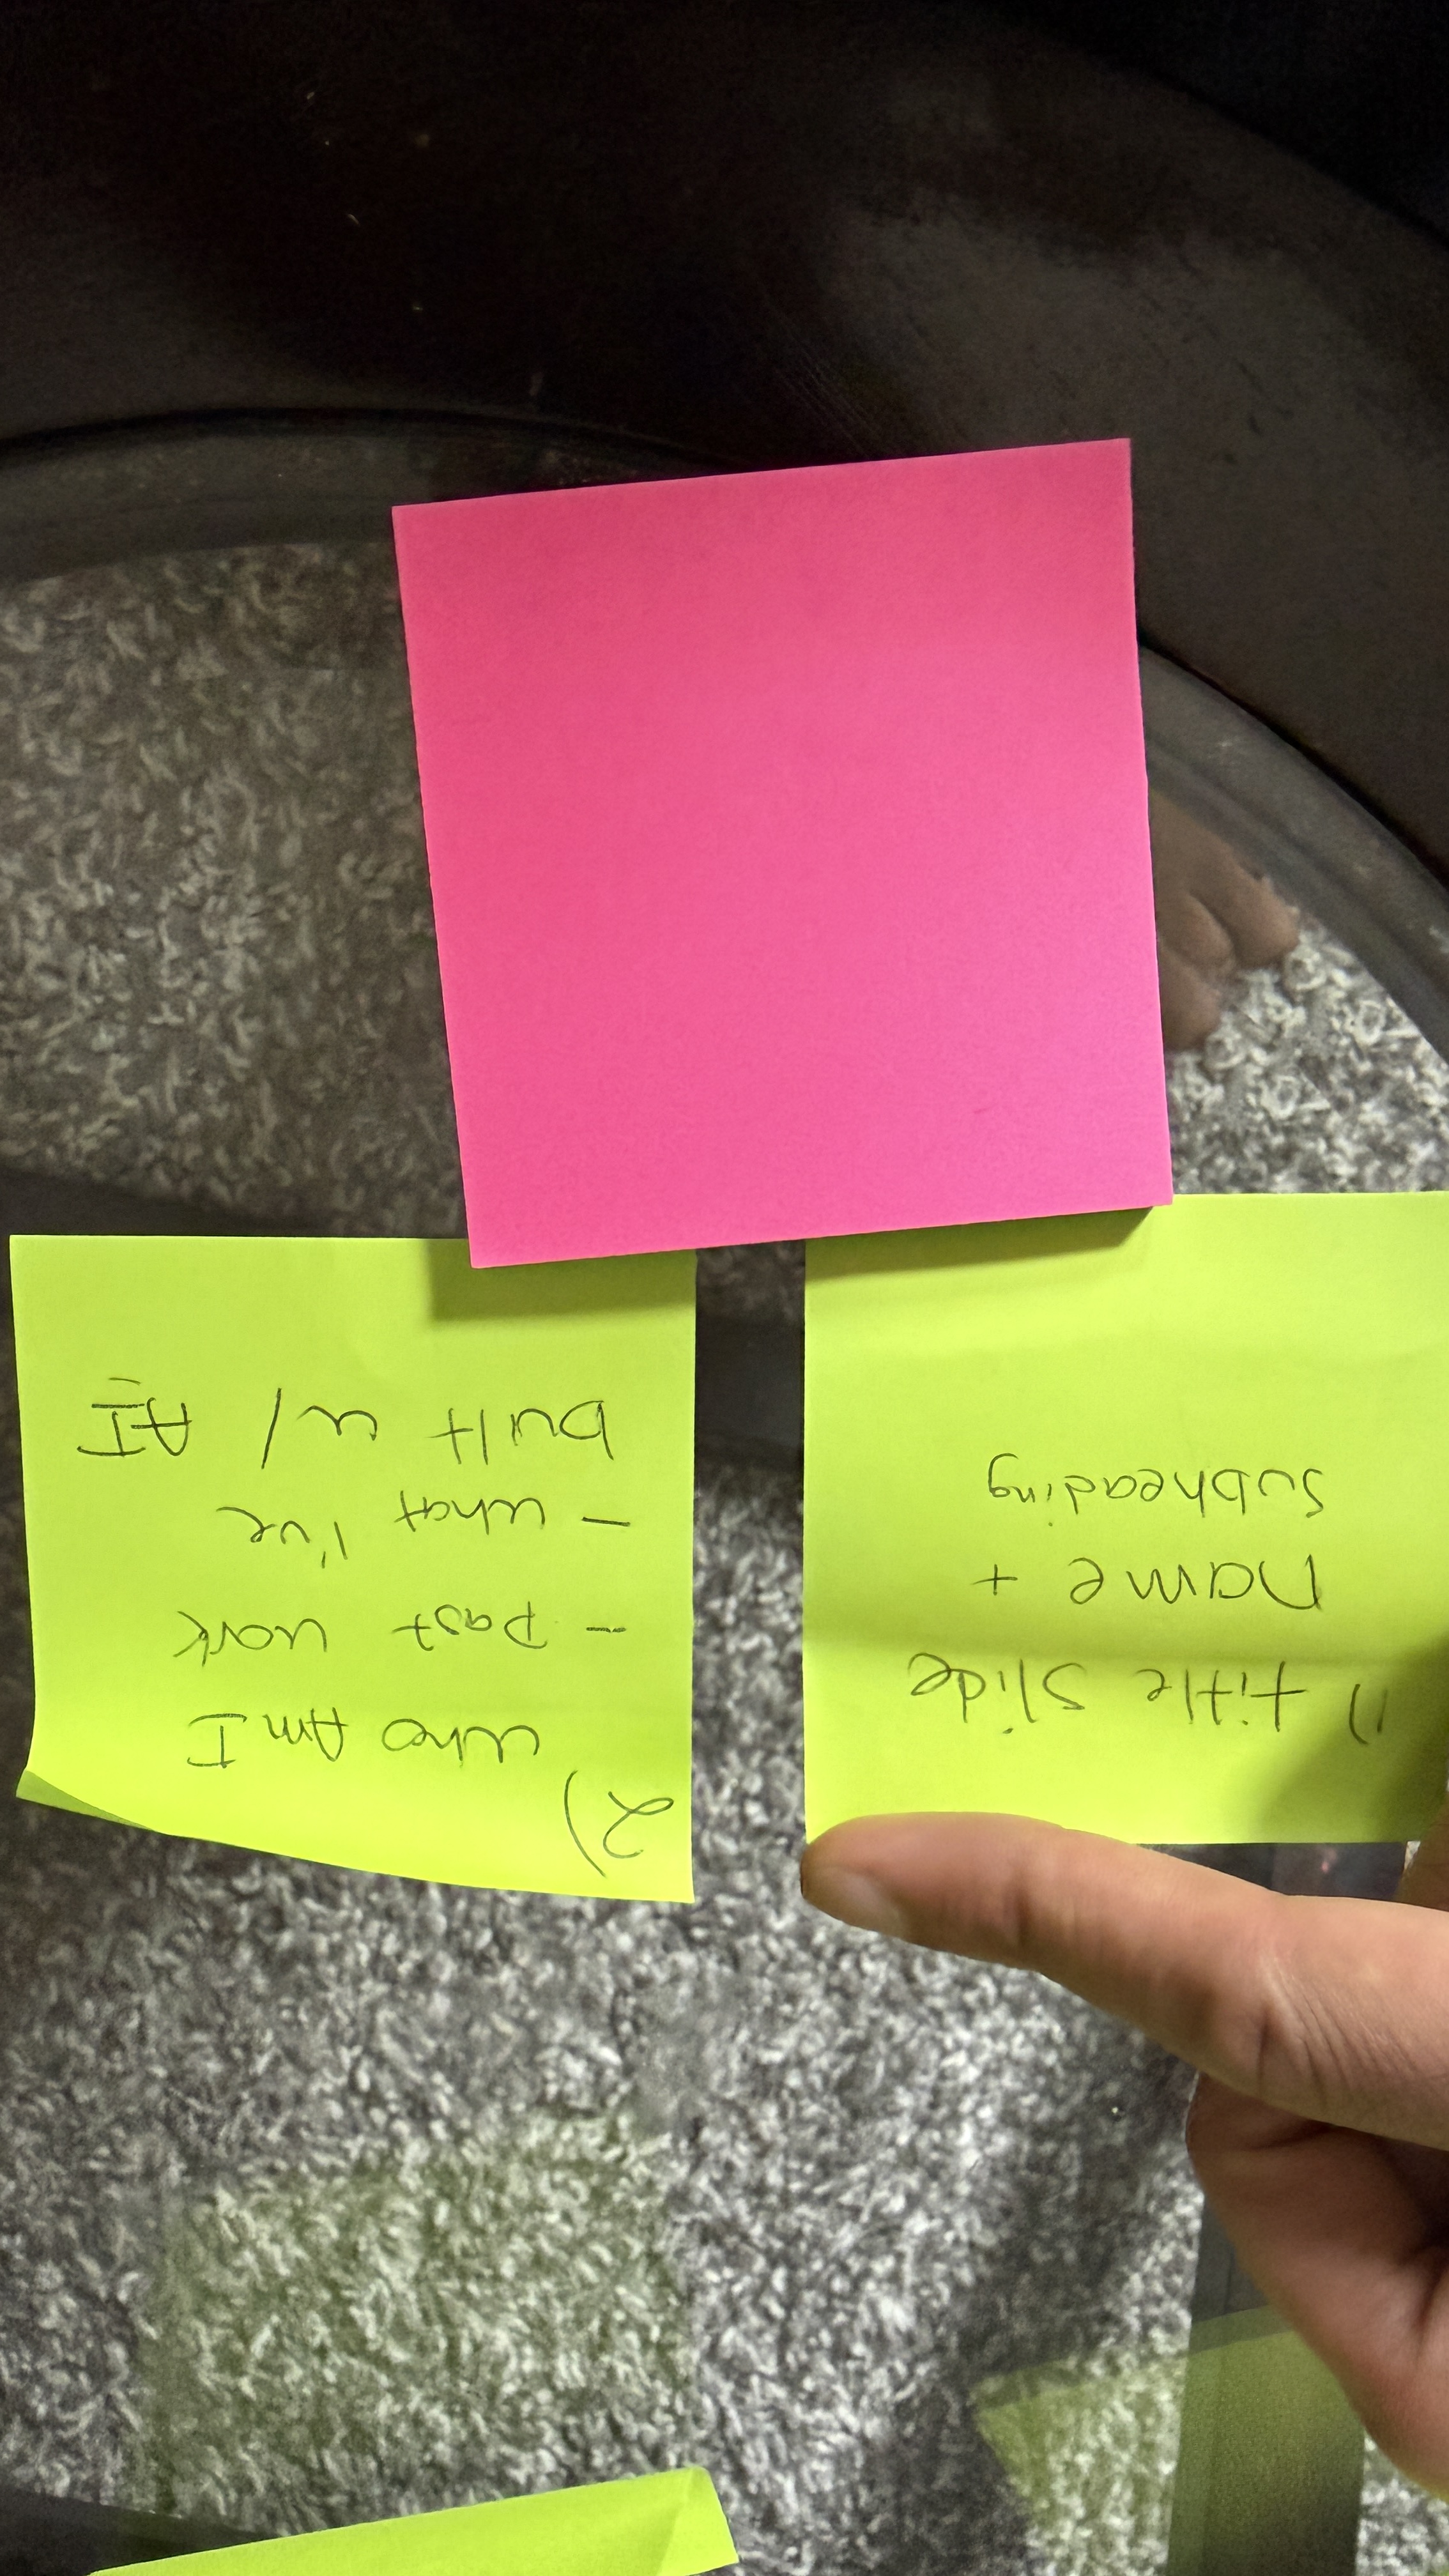 1) title slide
name +
subheading
2)
Who Am I
- Past work
- what I've
built w/ AI